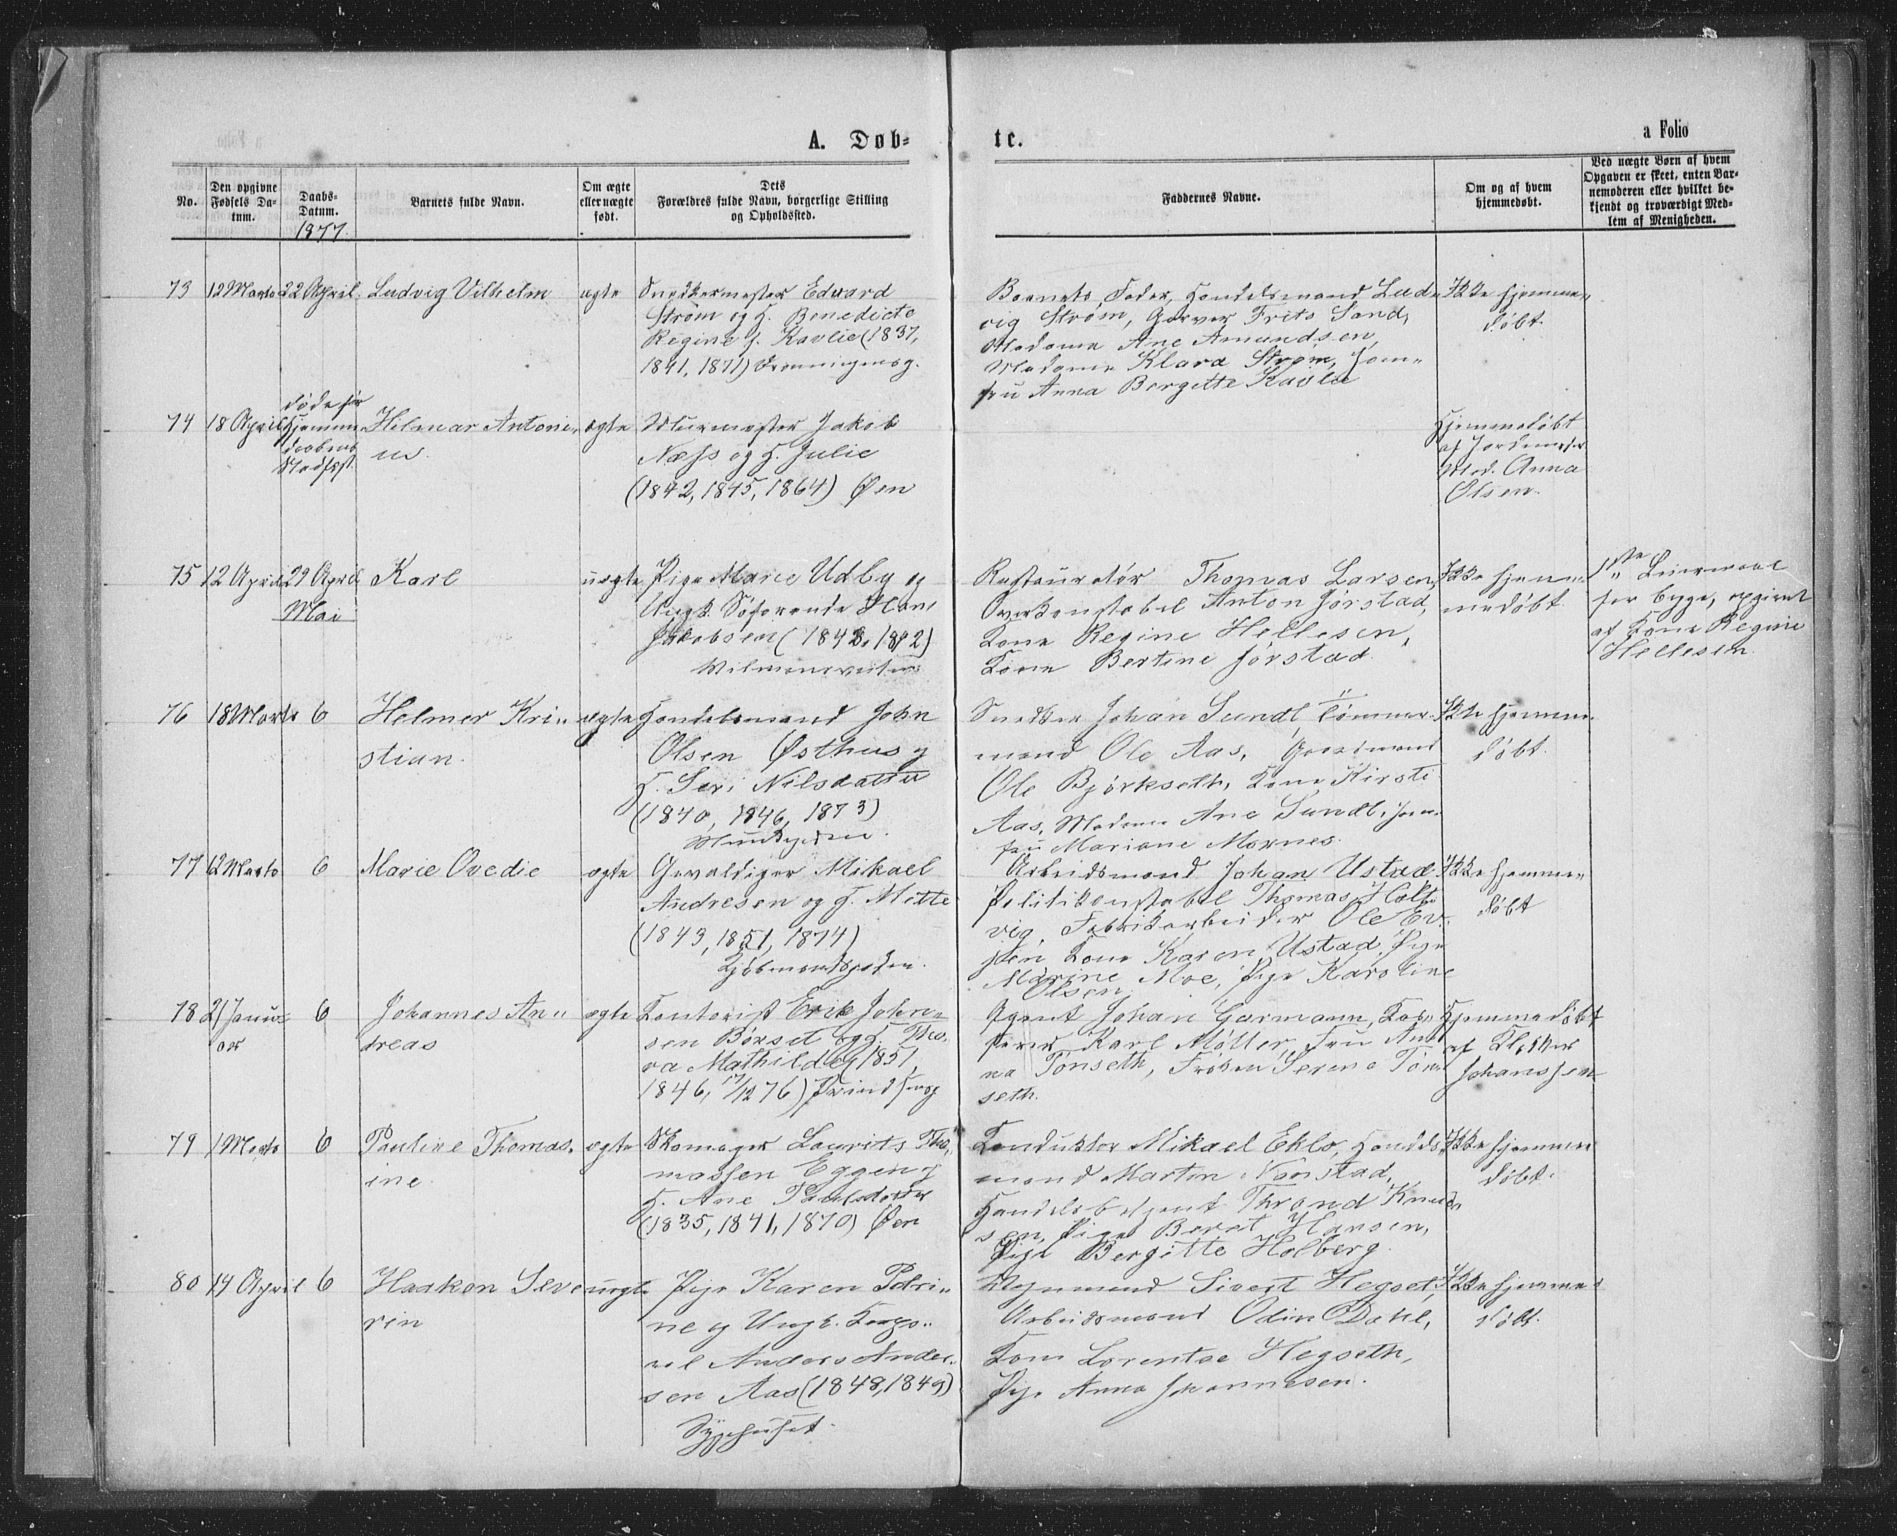 A. Døb=
te.
a Folio
No.
Den opgivne
Fødsels Da-
tum.
Daabs-
Datum.
1877.
Barnets fulde Navn.
Om ægte
eller uægte
født.
Dets
Forældres fulde Navn, borgerlige Stilling
og Opholdssted.
Faddernes Navne.
Om og af hvem
hjemmedøbt.
Ved uægte Børn af hvem
Opgaven er skeet, enten Bar-
nemoderen eller hvilket be-
kjendt og troværdigt Med-
lem af Menigheden.
73
12 Marts
22 April
Ludvig Vilhelm
ægte
Snedkermester Edvard
Strøm og H. Benedicte
Regine f. Kavlie (1837,
1841, 1871) Dronningensg.
Barnets Fader, Handelsmand Lud-
vig Strøm, Garver Frits Sand,
Madame Ane Amundsen,
Madame Klara Strøm, Jom-
fru Anna Bergette Kavlie
Ikke hjemme-
døbt.
74
18 April
døde før
Hjemme
daabens
Stadfæst.
Hilmar Antoni-
us.
ægte
Murmester Jakob
Næss og H. Julie
(1842, 1845, 1864) Øen
Hjemmedøbt
af Jordemoder
Mad. Anna
Olsen.
75
12 April
29 April
Mai
Karl
uægte
Pige Marie Udby og
Ungk. Søfarende Hans
Jakobsen (1848, 1842)
Restauratør Thomas Larsen,
Overkonstabel Anton Jørstad,
Kone Regine Hellesen,
Kone Bertine Jørstad.
Ikke hjem-
medøbt.
1ste Leiermaal
for begge, opgivet
af Kone Regine
Hellesen.
76
18 Marts
6
Helmer Kri-
stian.
ægte
Handelsmand John
Olsen Østhus og
H. Seri Nilsdatter
(1840, 1846, 1873)
Munkgaden.
Snedker Johan Sundt, Tømmer-
mand Ole Aas, Gaardmand
Ole Bjørkseth, Kone Kirsti
Aas, Madame Ane Sundt, Jom-
fru Mariane Mornes.
Ikke hjemme-
døbt.
77
12 Marts
6
Marie Ovedie
ægte
Gevaldiger Mikael
Andresen og H. Mette
(1843, 1851, 1874)
Kjøbmandsgaden.
Arbeidsmand Johan Ustad
Politikonstabel Thomas Holt-
vig, Fabrikarbeider Ole Ev-
jen Kone Karen Ustad, Pige
Marine Moe, Pige Karoline
Olsen
Ikke hjemme-
døbt
78
21 Janu-
ar
6
Johannes An-
dreas
ægte
Kontorist Erik John-
sen Børset og H. Tho-
ra Mathilde (1851,
1846, 17/12 76) Prindsensg
Agent Johan Garmann, Kas-
serer Karl Møller, Fru An-
na Tønseth, Frøken Serene Tøn-
seth.
Hjemmedøbt
af Klokker
Johanssen
79
1 Marts
6
Pauline Thomas-
ine.
ægte
Skomager Laurits Tho-
massen Eggen og
H. Ane Paulsdatter
(1835, 1841, 1870) Øen
Konduktør Mikael Eklo, Handels-
mand Martin Nonstad,
Handelsbetjent Thrond Knud-
sen, Pige Beret Hansen,
Pige Bergitte Holberg.
Ikke hjemme-
døbt.
80
14 April
6
Haakon Seve-
rin
uægte
Pige Karen Petri-
ne og Ungk. Korpo-
ral Anders Ander-
sen Aas (1848, 1849)
Sygehuset.
Vognmand Sivert Hegset,
Arbeidsmand Odin Dahl,
Kone Lorentse Hegseth,
Pige Anna Johannesen.
Ikke hjemme-
døbt.